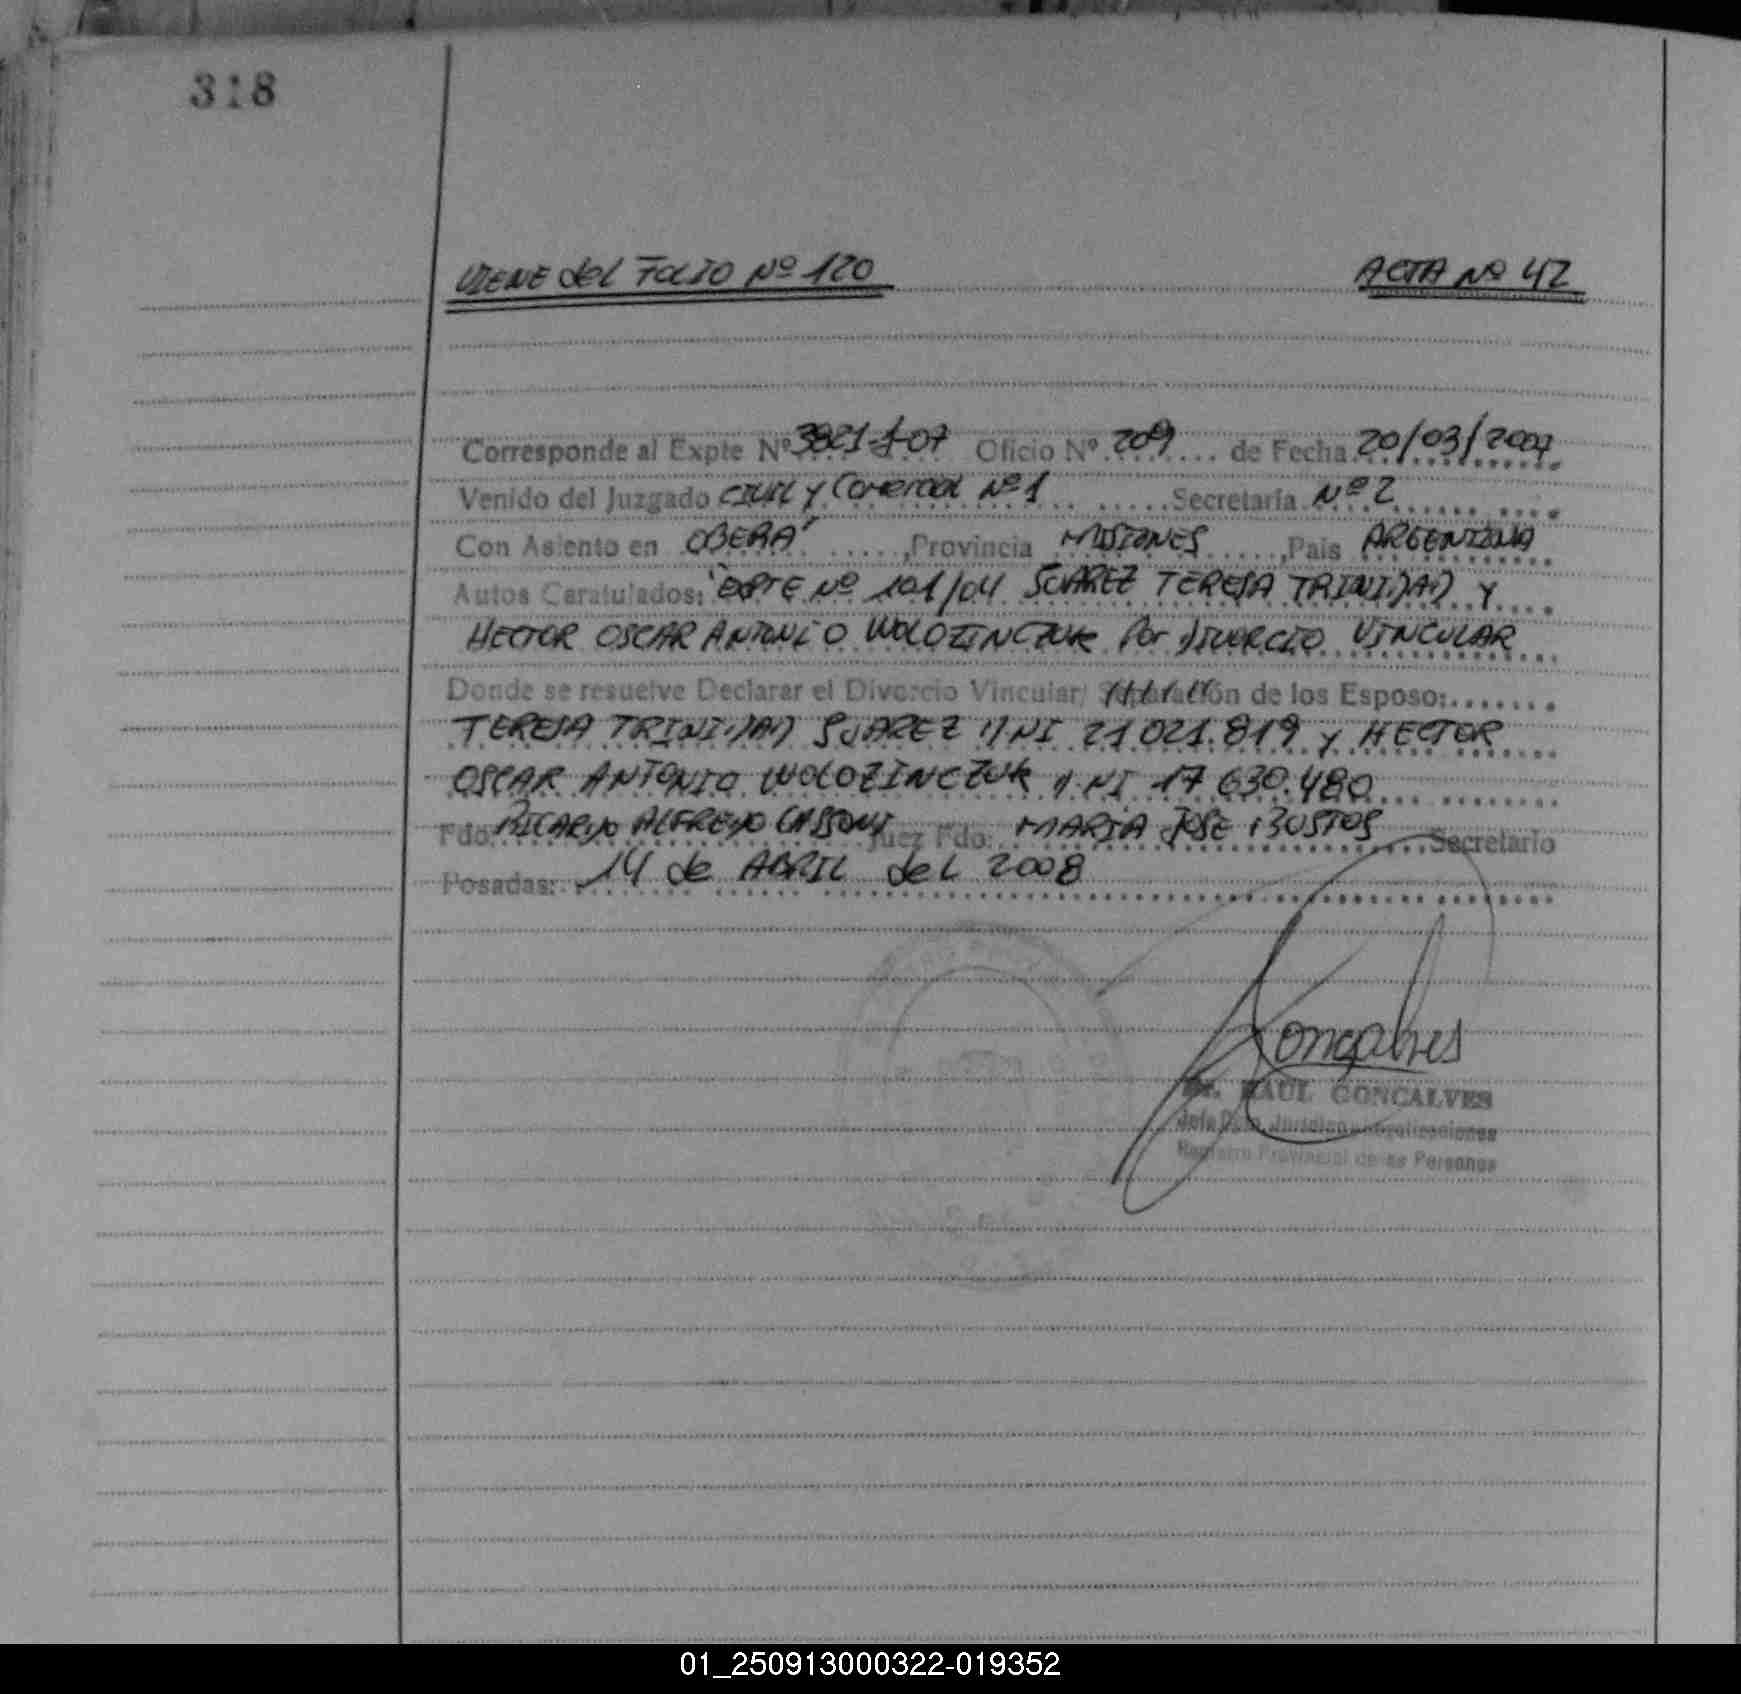 318
VIENE del FOLIO Nº 120 ACTA Nº 42
Corresponde al Expte Nº 3821-J-07 Oficio Nº 209 de Fecha 20/03/2007
Venido del Juzgado CIVIL y Comercial Nº 1 Secretaría Nº 2
Con Asiento en OBERÁ, Provincia MISIONES, País ARGENTINA
Autos Caratulados: "EXPTE Nº 101/04 SUAREZ TERESA TRINIDAD Y
HECTOR OSCAR ANTONIO WOLOZINCZUK Por DIVORCIO VINCULAR
Donde se resuelve Declarar el Divorcio Vincular/ Separación de los Esposo:
TERESA TRINIDAD SUAREZ DNI 21.021.819 y HECTOR
OSCAR ANTONIO WOLOZINCZUK DNI 17.630.480
Fdo: RICARDO ALFREDO CASSONI Juez Fdo: MARIA JOSE BUSTOS Secretario
Posadas: 14 de ABRIL del 2008
Goncalves
Dr. RAUL GONCALVES
Jefe Dpto. Jurídico
Registro Provincial de las Personas
01_250913000322-019352